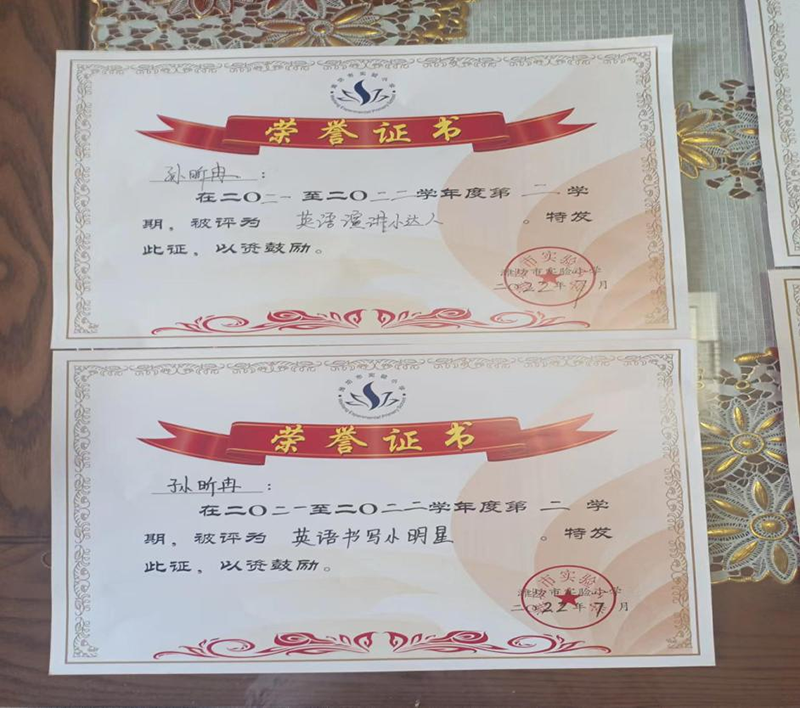 潍坊市实验小学
荣誉证书
孙昕冉：
在二〇二一至二〇二二学年度第二学
期，被评为 英语演讲小达人 。特发
此证，以资鼓励。
潍坊市实验小学
二〇22年7月
潍坊市实验小学
荣誉证书
孙昕冉：
在二〇二一至二〇二二学年度第二学
期，被评为 英语书写小明星 。特发
此证，以资鼓励。
潍坊市实验小学
二〇22年7月